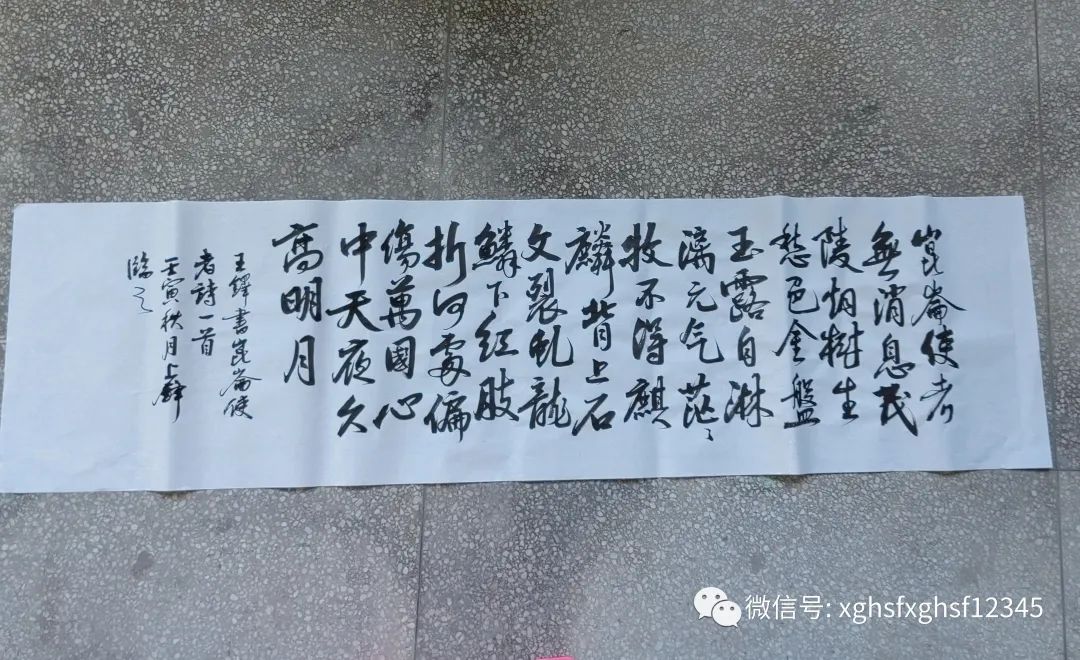 崑崙使者
無消息茂
陵烟樹生
愁色金盤
玉露自淋
漓元气茫〻
收不得麒
麟背上石
文裂虬龍
鱗下红肢
折何處偏
傷萬國心
中天夜久
高明月
王鐸書崑崙使
者詩一首
壬寅秋月上
臨之
微信号: xghsfxghsf12345